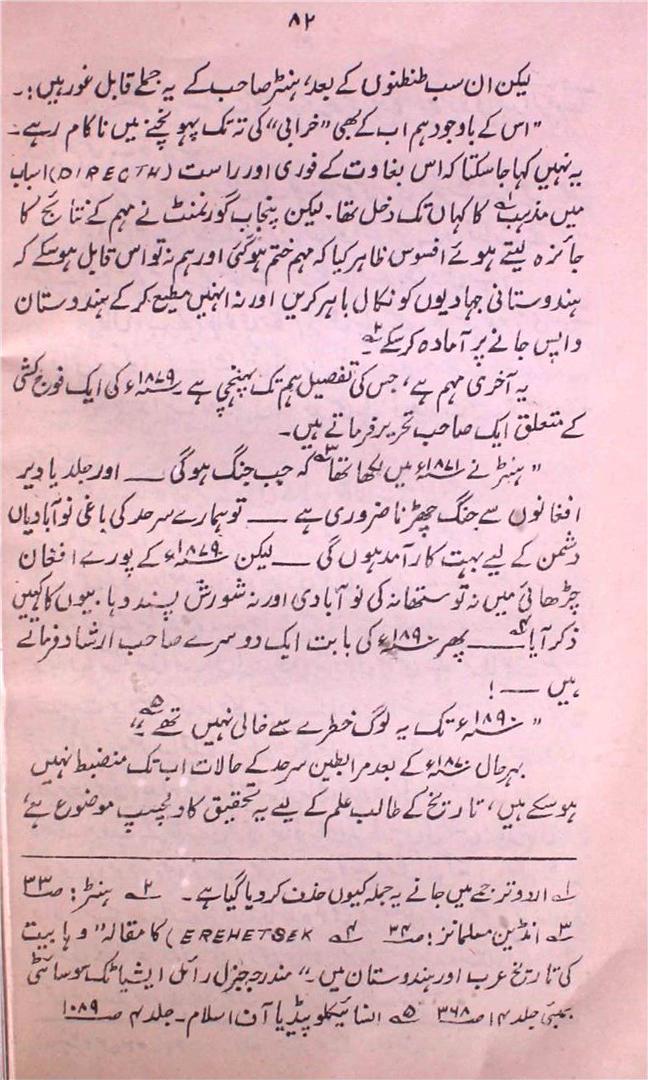 ۸۲
لیکن ان سب طنطنوں کے بعد، ہنٹر صاحب کے یہ جملے قابل غور ہیں:۔
"اس کے باوجود ہم اب کے بھی "خرابی" کی تہ تک پہونچنے میں ناکام رہے۔
یہ نہیں کہا جا سکتا کہ اس بغاوت کے فوری اور راست (DIRECTH) اسباب
میں مذہب۱ کا کہاں تک دخل تھا۔ لیکن پنجاب گورنمنٹ نے مہم کے نتائج کا
جائزہ لیتے ہوئے افسوس ظاہر کیا کہ مہم ختم ہو گئی اور ہم نہ تو اس قابل ہو سکے کہ
ہندوستانی جہادیوں کو نکال باہر کریں اور نہ انہیں مطیع کر کے ہندوستان
واپس جانے پر آمادہ کر سکے۲۔
یہ آخری مہم ہے، جس کی تفصیل ہم تک پہنچی ہے ۱۸۷۹ء کی ایک فوج کشی
کے متعلق ایک صاحب تحریر فرماتے ہیں۔
"ہنٹر نے ۱۸۷۱ء میں لکھا تھا۳ کہ جب جنگ ہوگی ـــ اور جلد یا دیر
افغانوں سے جنگ چھڑنا ضروری ہے ـــ تو ہمارے سرحد کی باغی نوآبادیاں
دشمن کے لیے بہت کارآمد ہوں گی ـــ لیکن ۱۸۷۹ء کے پورے افغان
چڑھائی میں نہ تو ستھانہ کی نوآبادی اور نہ شورش پسند وہابیوں کا کہیں
ذکر آیا۴ ـــ پھر ۱۸۹۰ء کی بابت ایک دوسرے صاحب ارشاد فرماتے
ہیں ـــ!
"۱۸۹۰ء تک یہ لوگ خطرے سے خالی نہیں تھے۵"
بہرحال ۱۸۷۰ء کے بعد مرابطین سرحد کے حالات اب تک منضبط نہیں
ہو سکے ہیں، تاریخ کے طالب علم کے لیے یہ تحقیق کا دلچسپ موضوع ہے،
۱؎ اردو ترجمے میں جانے یہ جملہ کیوں حذف کر دیا گیا ہے۔ ۲؎ ہنٹر: ص۳۳
۳؎ انڈین مسلمانز: ص۳۴ ۴؎ EREHETSEK) کا مقالہ "وہابیت
کی تاریخ عرب اور ہندوستان میں۔" مندرجہ جنرل رائل ایشیاٹک سوسائٹی
بمبئی جلد ۱۴ ص۳۶۸ ۵؎ انسائیکلوپیڈیا آف اسلام۔ جلد ۴ ص۱۰۸۹